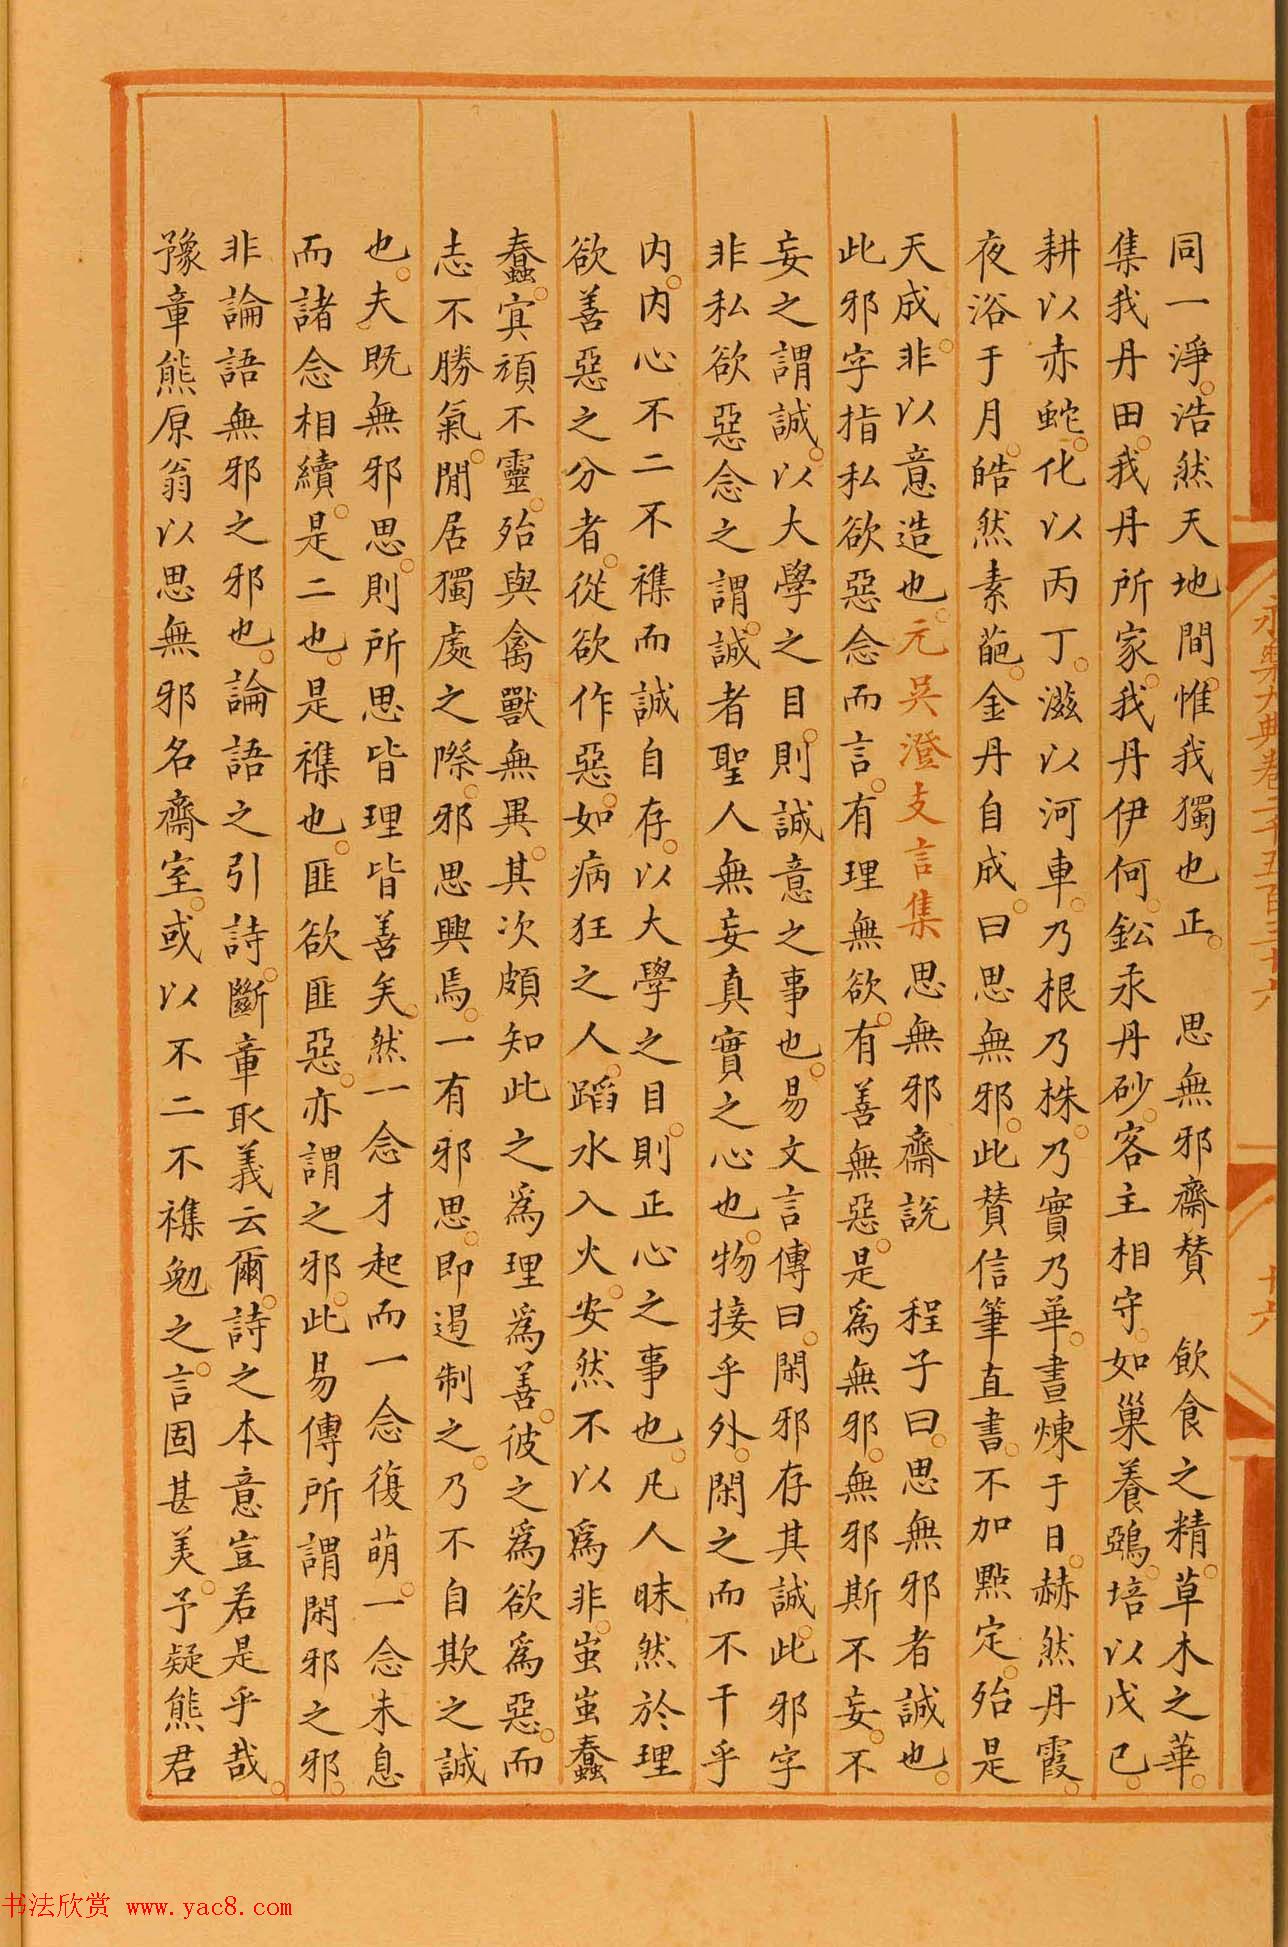 永樂大典卷二千五百三十六
十六
同一淨浩然天地間惟我獨也正 思無邪齋贊 飲食之精草木之華
集我丹田我丹所家我丹伊何鈆汞丹砂客主相守如巢養鵶培以戊己
耕以赤蛇化以丙丁滋以河車乃根乃株乃實乃華晝煉于日赫然丹霞
夜浴于月皓然素葩金丹自成曰思無邪此贊信筆直書不加點定殆是
天成非以意造也元吳澄支言集思無邪齋說 程子曰思無邪者誠也
此邪字指私欲惡念而言有理無欲有善無惡是爲無邪無邪斯不妄不
妄之謂誠以大學之目則誠意之事也易文言傳曰閑邪存其誠此邪字
非私欲惡念之謂誠者聖人無妄真實之心也物接乎外閑之而不干乎
内内心不二不襍而誠自存以大學之目則正心之事也凡人昧然於理
欲善惡之分者從欲作惡如病狂之人蹈水入火安然不以爲非蚩蚩蠢
蠢㝠頑不靈殆與禽獸無異其次頗知此之爲理爲善彼之爲欲爲惡而
志不勝氣閒居獨處之際邪思興焉一有邪思即遏制之乃不自欺之誠
也夫既無邪思則所思皆理皆善矣然一念才起而一念復萌一念未息
而諸念相續是二也是襍也匪欲匪惡亦謂之邪此易傳所謂閑邪之邪
非論語無邪之邪也論語之引詩斷章取義云爾詩之本意豈若是乎哉
豫章熊原翁以思無邪名齋室或以不二不襍勉之言固甚美予疑熊君
书法欣赏 www.yac8.com